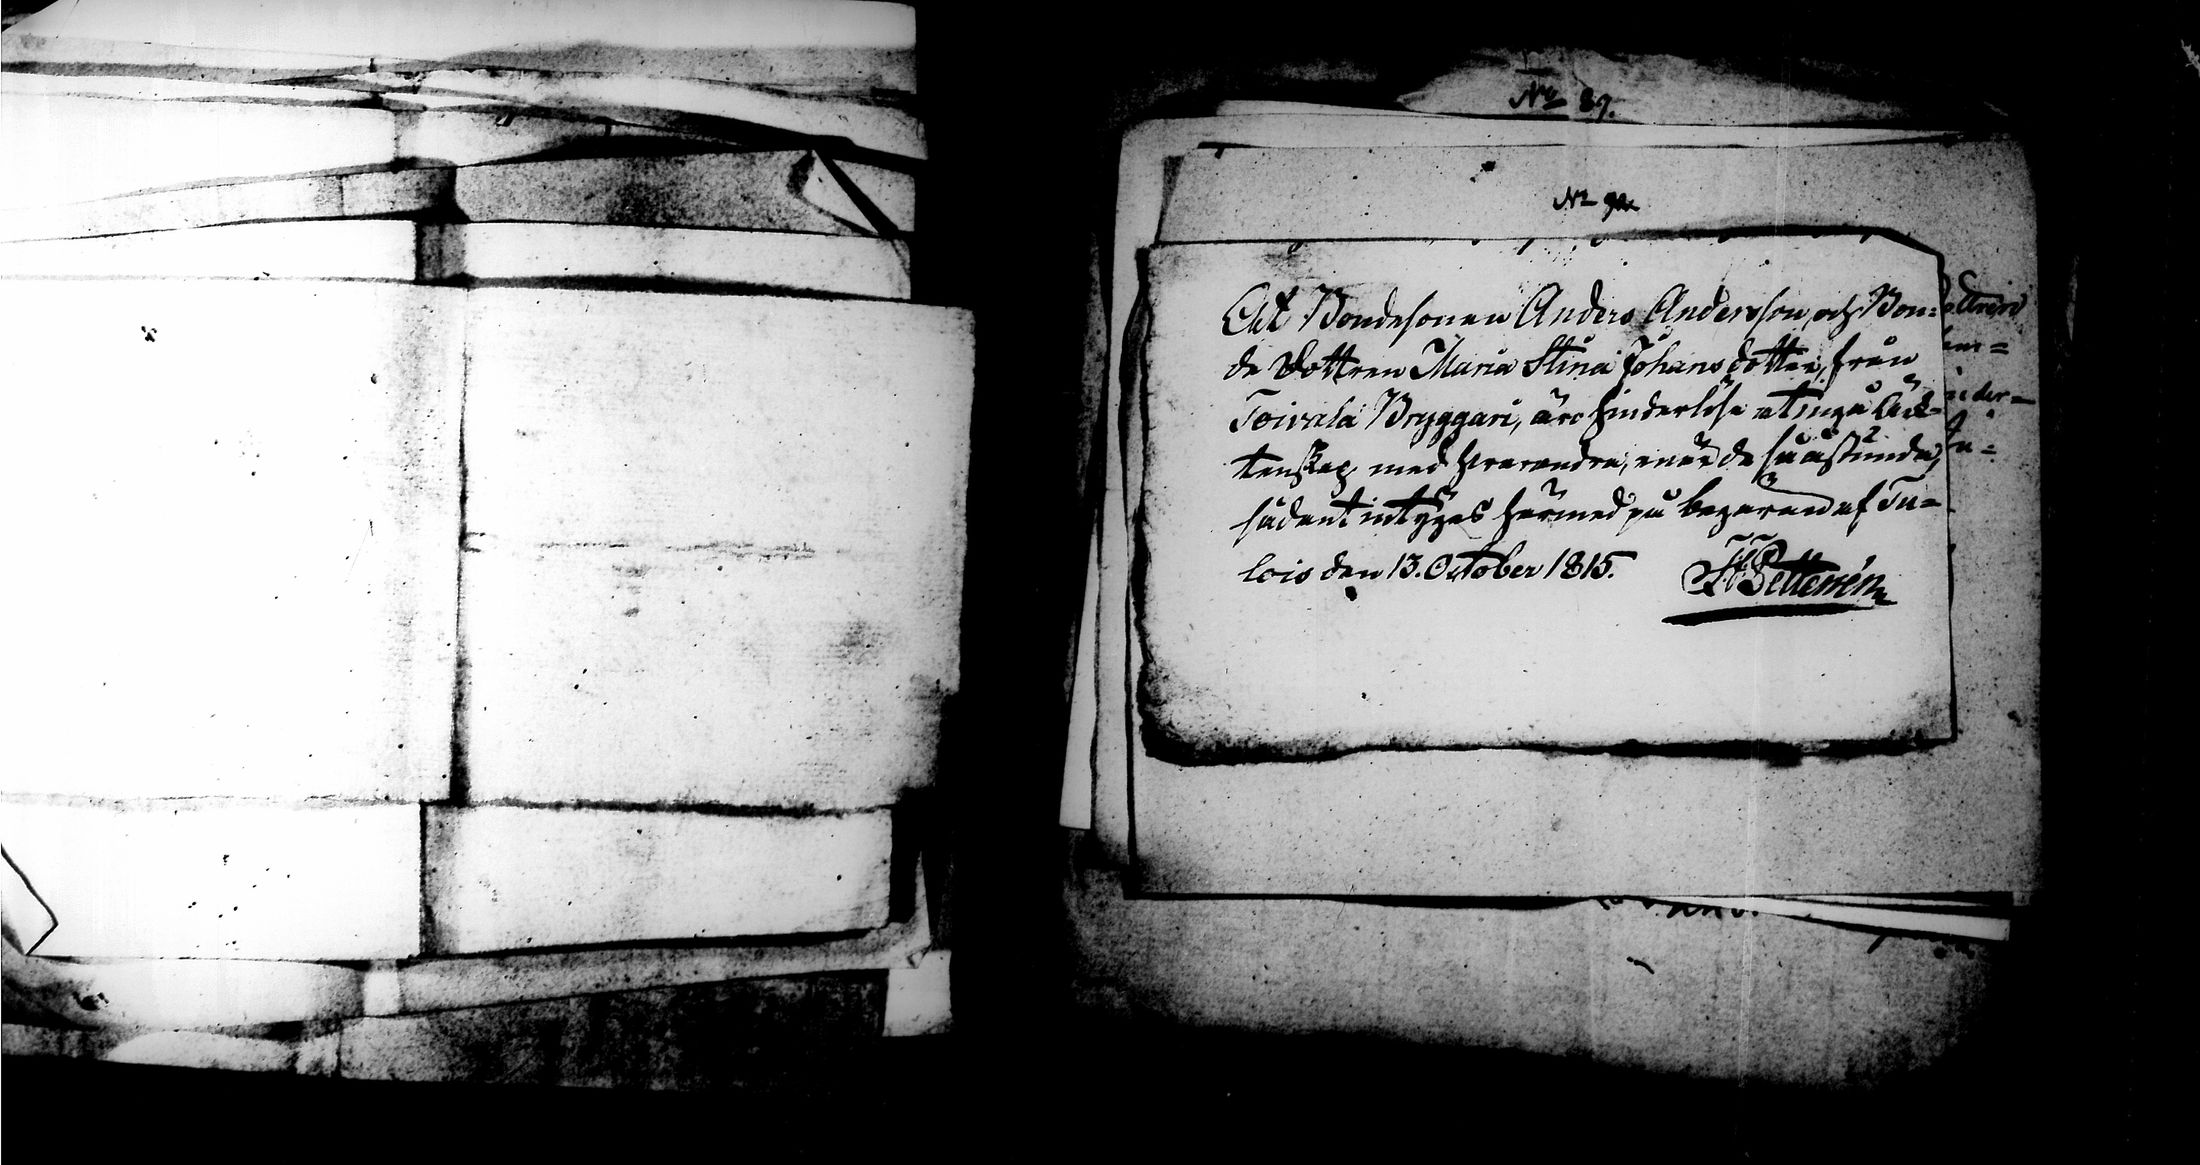 No 89.
No 90
Att Bondesonen Anders Andersson, och Bon=
de Dottren Maria Stina Johans dotter, från
Toivala Bryggari, äro hinderlöse at ingå Äk=
tenskap med hvarandra, enär de så åstunda,
sådant intygas härmed på begäran af Tu=
lois den 13. October 1815.